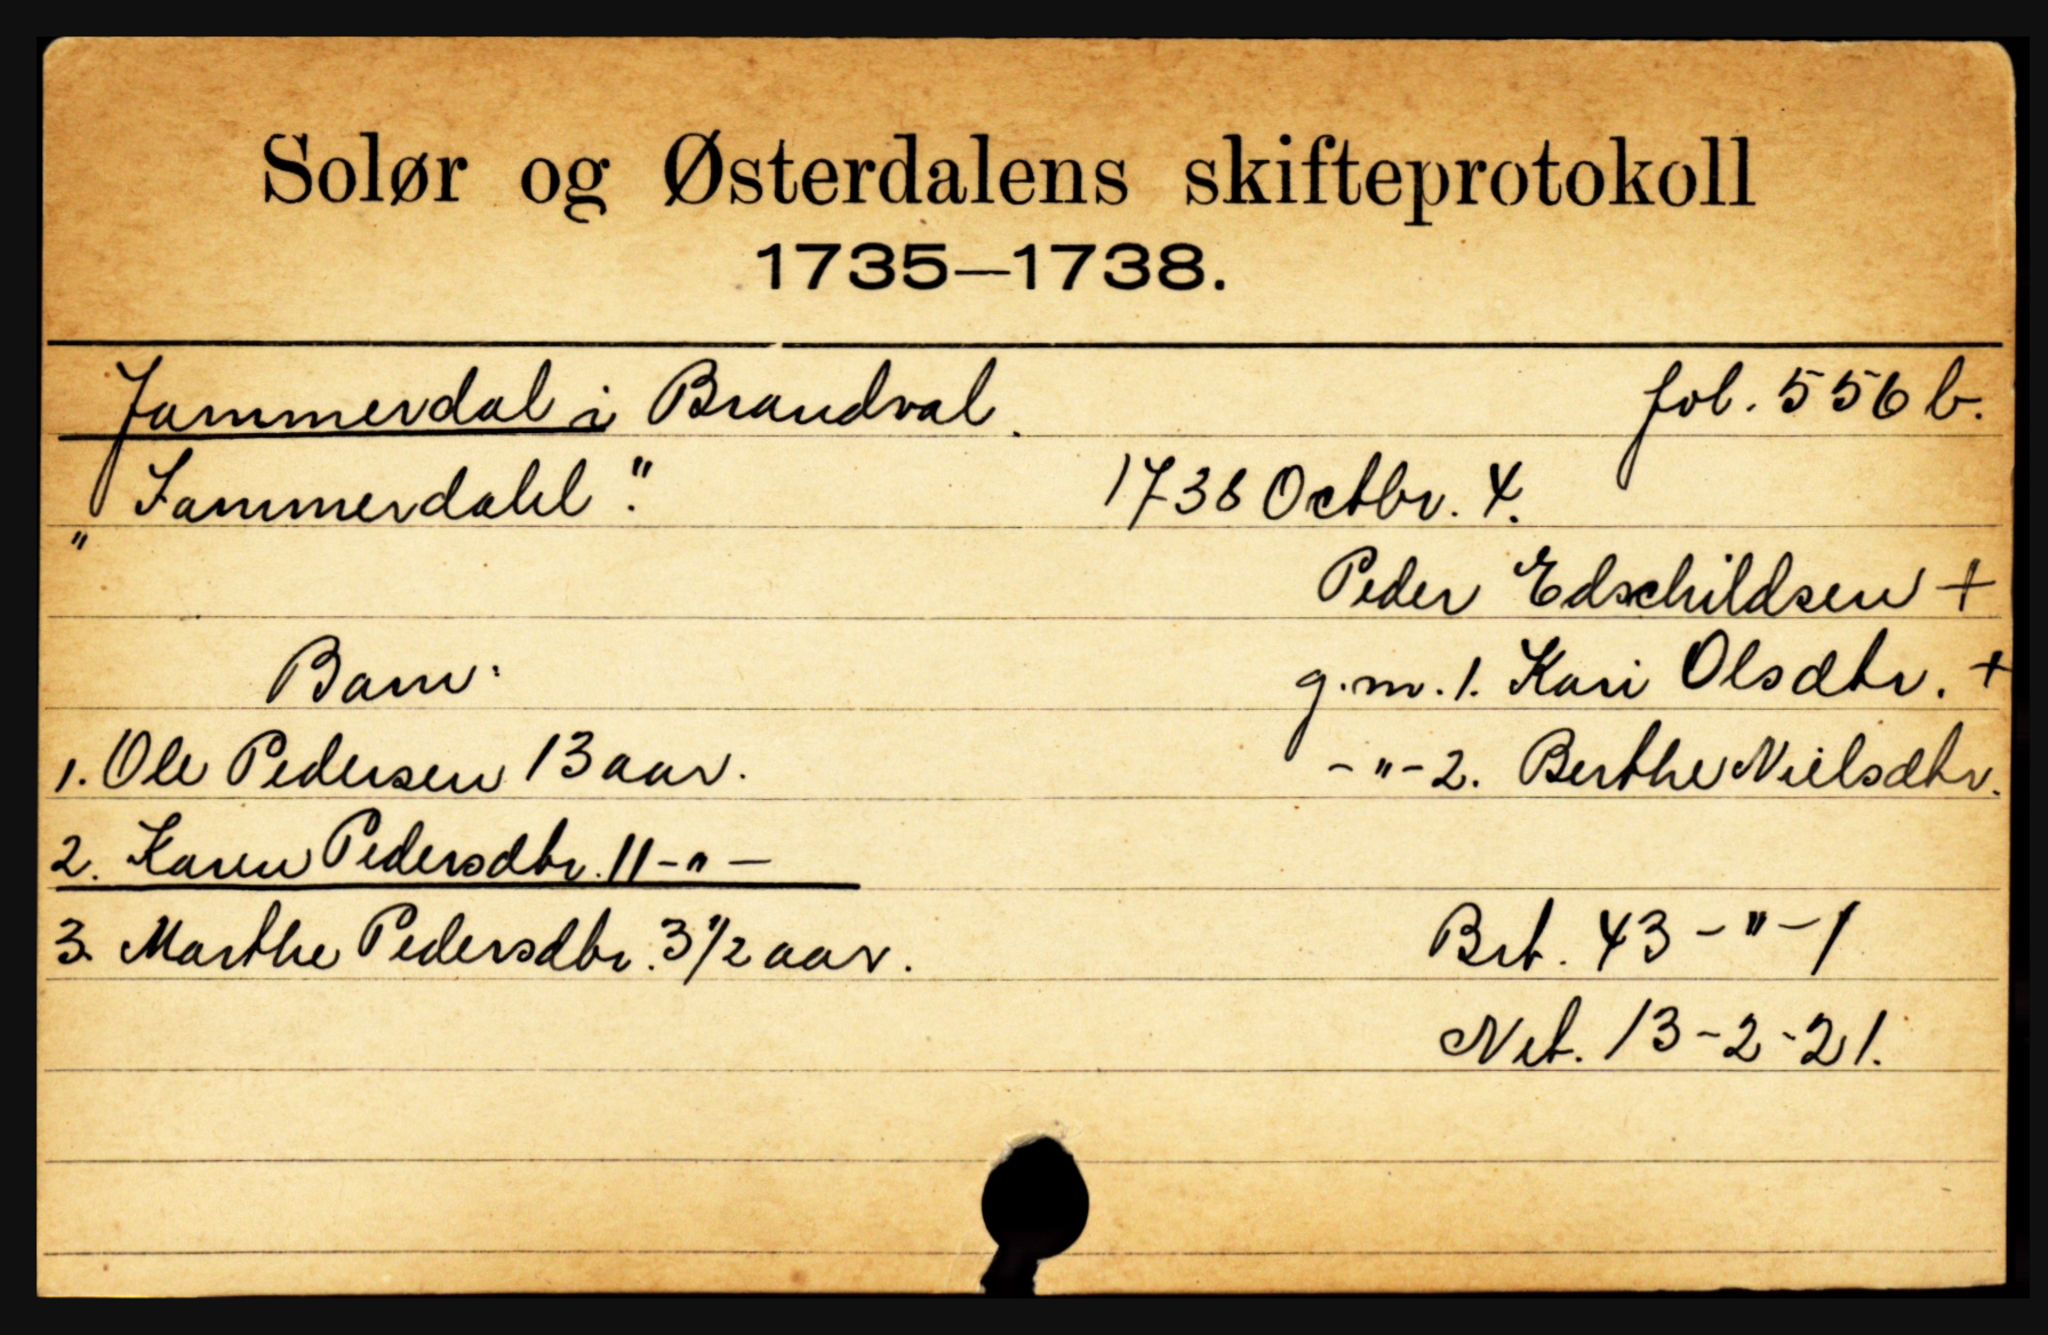 Solør og Østerdalens skifteprotokoll
1735—1738.
Jammerdal i Brandval. fol. 556 b.
"Jammerdahl". 1738 Octbr. 4.
Peder Edschildsen +
g.m. 1. Kari Olsdtr. +
-"- 2. Berthe Nielsdtr.
Barn:
1. Ole Pedersen 13 aar.
2. Karen Pedersdtr. 11 -"-
3. Marthe Pedersdtr. 3 1/2 aar.
Brt. 43 - " - 1
Net. 13 - 2 - 21.